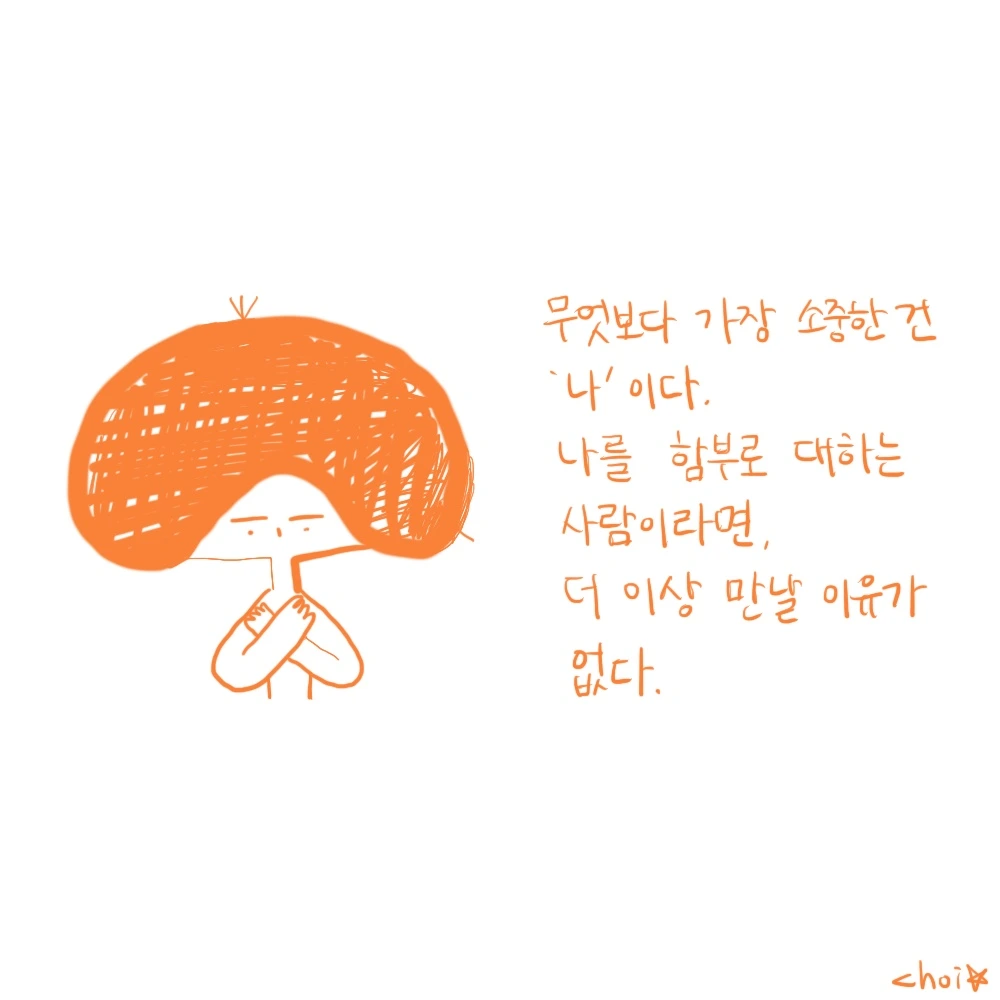 무엇보다 가장 소중한 건
‘나’이다.
나를 함부로 대하는
사람이라면,
더 이상 만날 이유가
없다.
choi☆